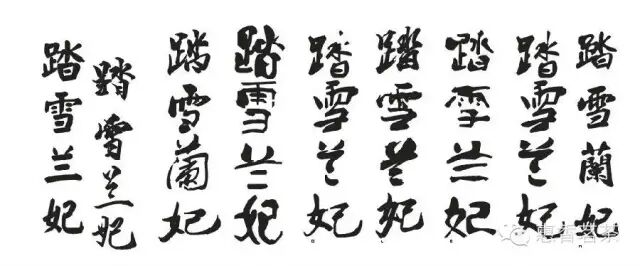 踏雪兰妃
踏雪兰妃
踏雪蘭妃
踏雪兰妃
踏雪兰妃
踏雪兰妃
踏雪兰妃
踏雪兰妃
踏雪蘭妃
惠香茗茶